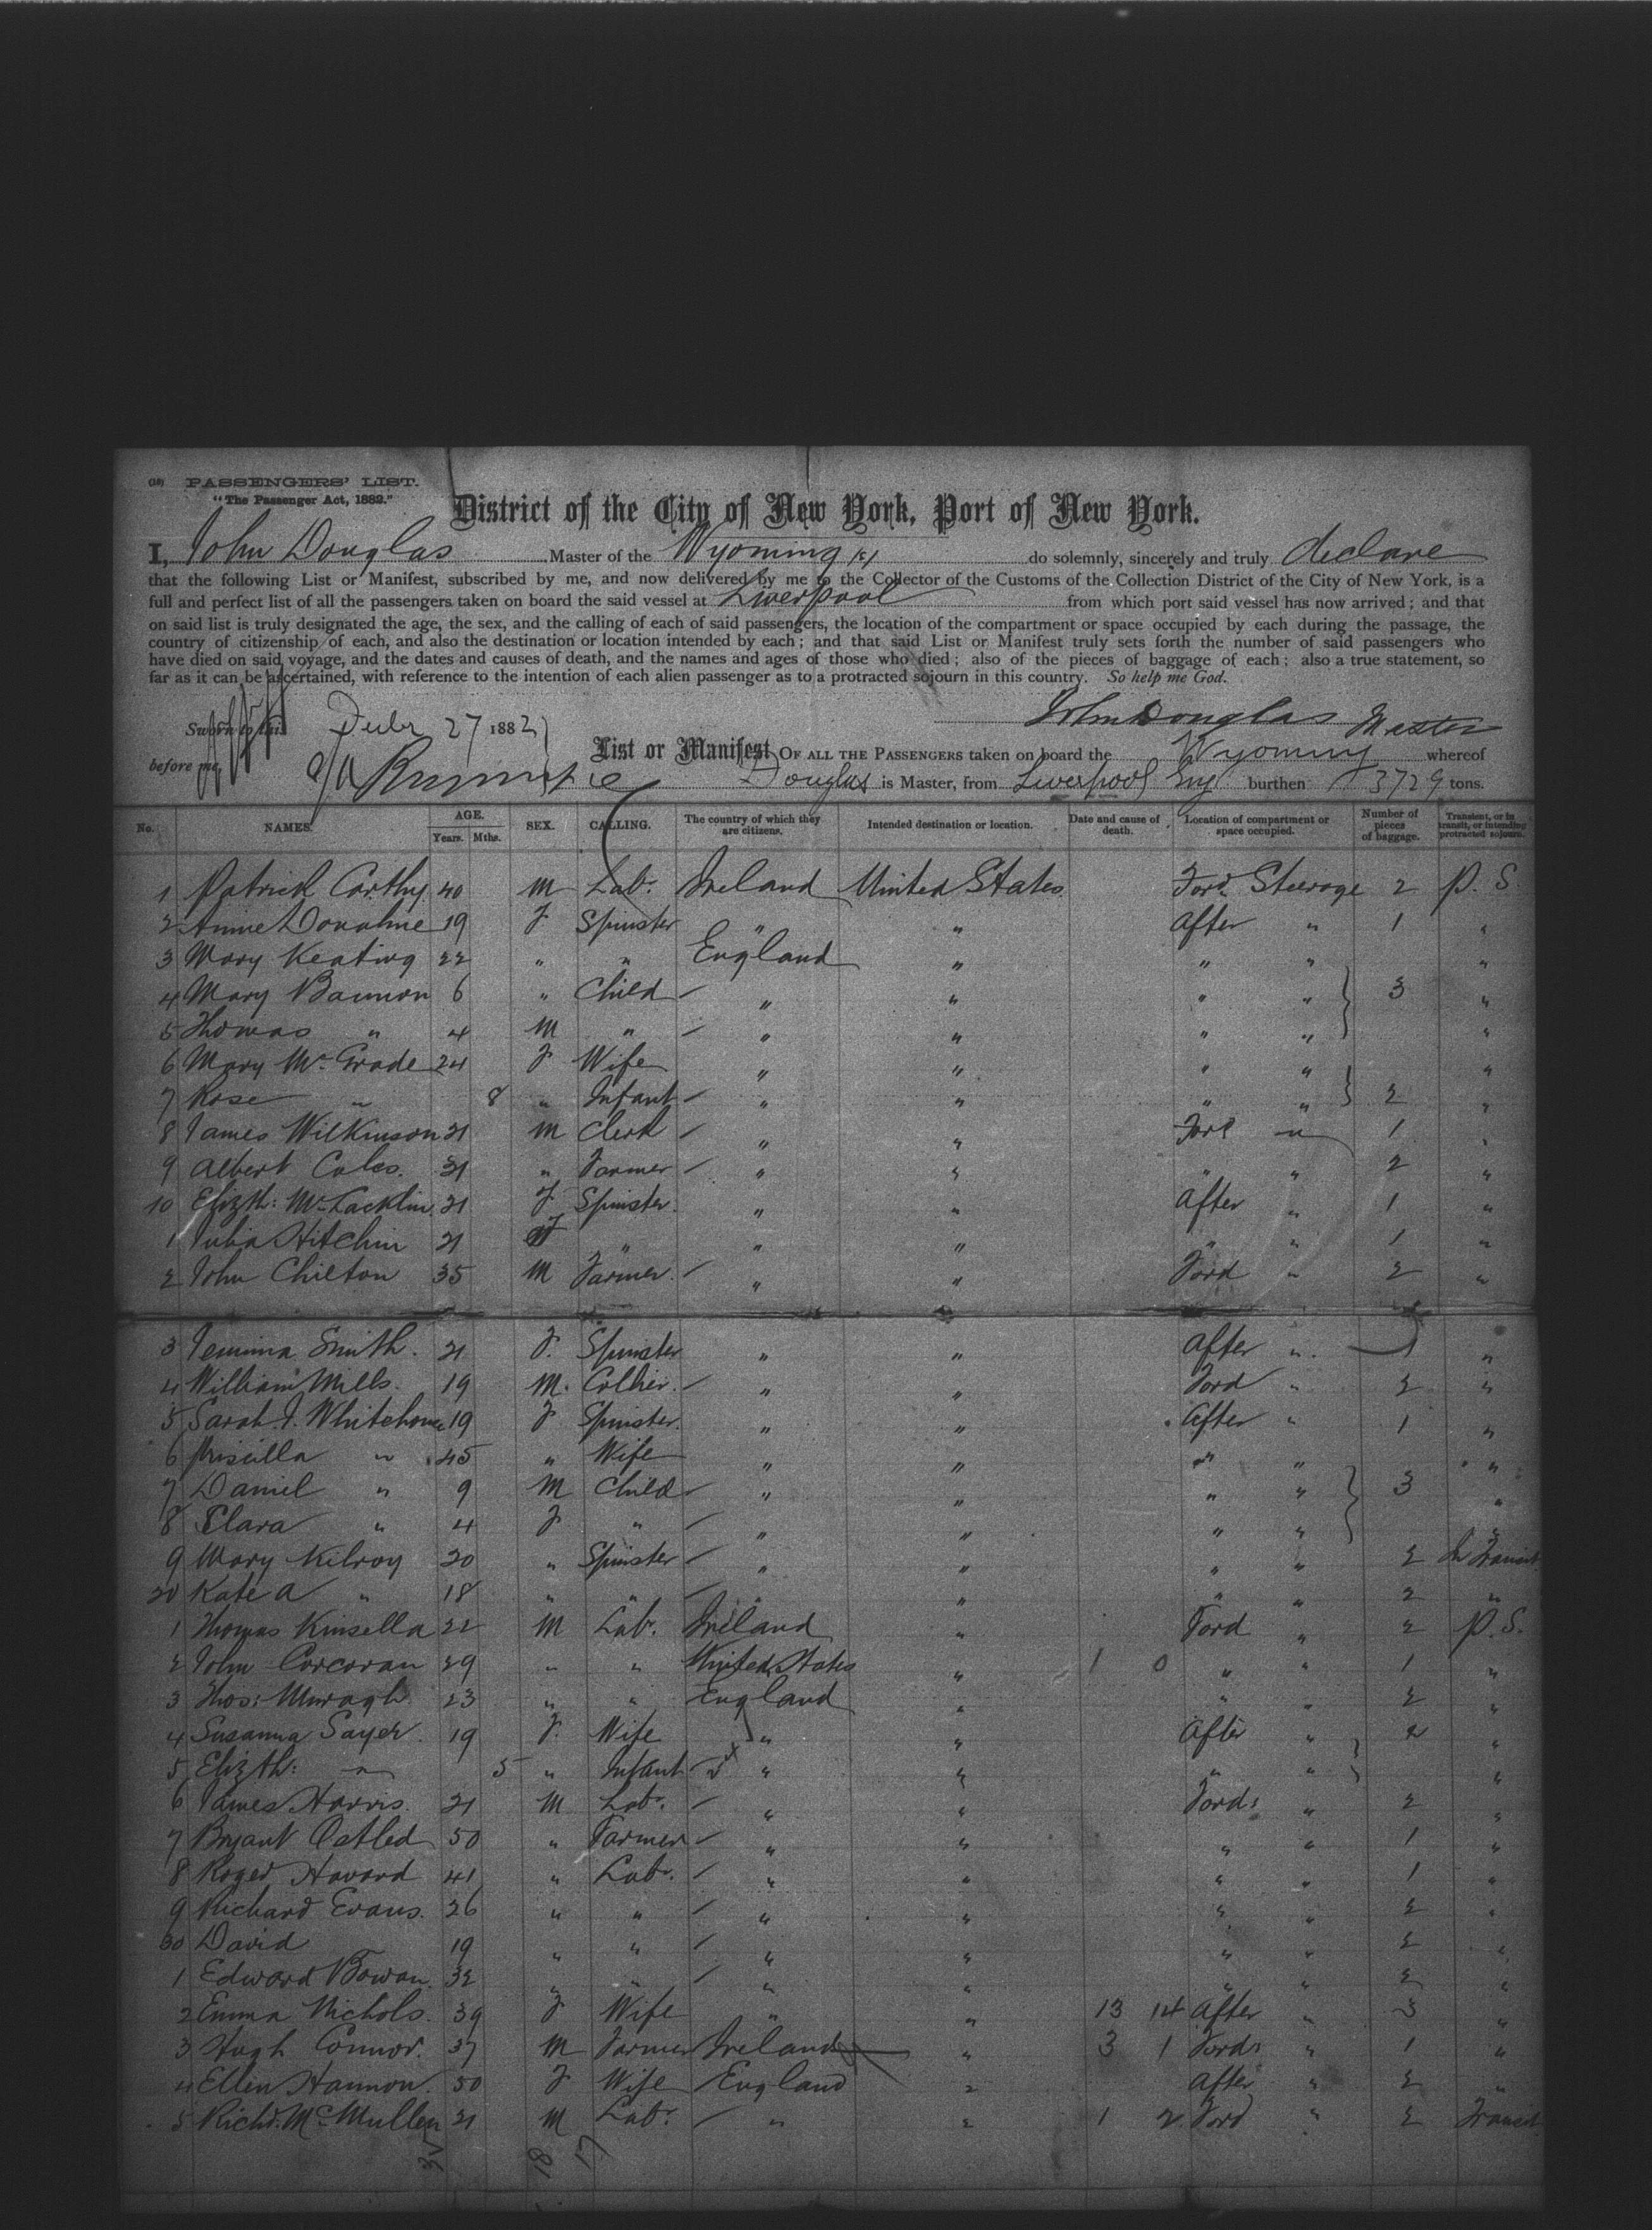 (18) PASSENGERS' LIST.
"The Passenger Act, 1882."
District of the City of New York, Port of New York.
I, John Douglas Master of the Wyoming (s) do solemnly, sincerely and truly declare
that the following List or Manifest, subscribed by me, and now delivered by me to the Collector of the Customs of the Collection District of the City of New York, is a
full and perfect list of all the passengers taken on board the said vessel at Liverpool from which port said vessel has now arrived; and that
on said list is truly designated the age, the sex, and the calling of each of said passengers, the location of the compartment or space occupied by each during the passage, the
country of citizenship of each, and also the destination or location intended by each; and that said List or Manifest truly sets forth the number of said passengers who
have died on said voyage, and the dates and causes of death, and the names and ages of those who died; also of the pieces of baggage of each; also a true statement, so
far as it can be ascertained, with reference to the intention of each alien passenger as to a protracted sojourn in this country. So help me God.
John Douglas Master
Sworn to this 27 188
before me
List or Manifest OF ALL THE PASSENGERS taken on board the Wyoming whereof
Douglas is Master, from Liverpool Eng burthen 3729 tons.
No. NAMES. AGE. Years. Mths. SEX. CALLING. The country of which they are citizens. Intended destination or location. Date and cause of death. Location of compartment or space occupied. Number of pieces of baggage. Transient, or in transit, or intending protracted sojourn.
1 Patrick Carthy 40 M Lab. Ireland United States Ford Steerage 2 P. S.
2 Annie Donahue 19 F Spinster " " After " 1 "
3 Mary Keating 22 " " England " " " "
4 Mary Bannon 6 " Child " " " " 3 "
5 Thomas " 4 M " " " " " "
6 Mary McGrade 24 F Wife " " " " "
7 Rose " 8 " Infant " " " " 2 "
8 James Wilkinson 21 M Clerk " " Ford " 1 "
9 Albert Coles 31 " Farmer " " " " 2 "
10 Elizth: McLacklin 21 F Spinster " " After " 1 "
1 Julia Hitchin 21 F " " " " " 1 "
2 John Chilton 35 M Farmer " " Ford " 2 "
3 Jemima Smith 21 F. Spinster " " After " 1 "
4 William Mills 19 M. Collier " " Ford " 2 "
5 Sarah J. Whitehouse 19 F Spinster " " After " 1 "
6 Priscilla " 45 " Wife " " " " "
7 Daniel " 9 M Child " " " " 3 "
8 Clara " 4 F " " " " " "
9 Mary Kilroy 20 " Spinster " " " " 2 In Transit
20 Kate A " 18 " " " " " " 2 "
1 Thomas Kinsella 22 M Lab. Ireland " Ford " 2 P. S.
2 John Corcoran 29 " " United States " 1 0 " " 1 "
3 Thos: Muragh 23 " " England " " " 2 "
4 Susanna Sayer 19 F. Wife " " After " 2 "
5 Elizth: " 5 " Infant " " " " "
6 James Harris 21 M Lab. " " Ford: " 2 "
7 Bryant 50 " Farmer " " " " 1 "
8 Roger Havard 41 " Lab. " " " " 1 "
9 Richard Evans 26 " " " " " " 2 "
30 David 19 " " " " " " 2 "
1 Edward Bowan 32 " " " " " " 2 "
2 Emma Nichols 39 F Wife " " 13 14 After " 3 "
3 Hugh Connor 37 M Farmer Ireland " 3 1 Ford: " 1 "
4 Ellen Hannon 50 F Wife England " After " 2 "
5 Richd. McMullen 21 M Lab. " " 1 2 Ford " 2 Transit
18 17